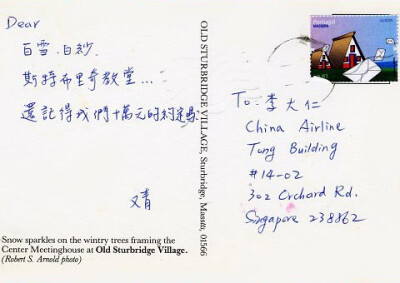 Dear
白雪.白紗.
斯特布里奇教堂...
還記得我們十萬元的約定嗎
文青
Snow sparkles on the wintry trees framing the
Center Meetinghouse at Old Sturbridge Village.
(Robert S. Arnold photo)
OLD STURBRIDGE VILLAGE, Sturbridge, Massts, 01566
Portugal
MADEIRA
To: 李大仁
China Airline
Tong Building
#14-02
302 Orchard Rd.
Singapore 238862